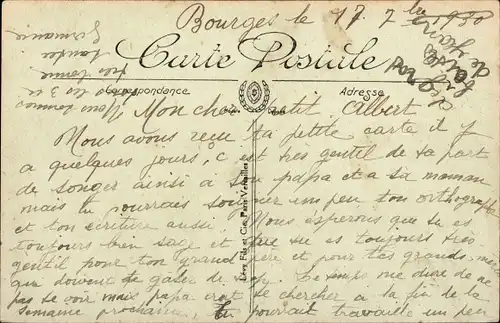 Bourges le 17 7bre 1930
Carte Postale
Correspondance
Adresse
Mon cher petit Albert
Nous avons reçu ta petite carte il y
a quelques jours, c'est très gentil de ta part
de songer ainsi à ton papa et a ta maman
mais tu pourrais soigner un peu ton orthographe
et ton écriture aussi. Nous espérons que tu es
toujours bien sage et que tu es toujours très
gentil pour ton grand père et pour tes grands mères
qui doivent te gâter de trop. Le temps me dure de ne
pas te voir mais papa ira te chercher à la fin de la
semaine prochaine, tu pourrait travaillé un peu
Lévy Fils et Cie, Paris-Versailles
Nous
sommes
tous les 3 en
très bonne
santée
Germaine